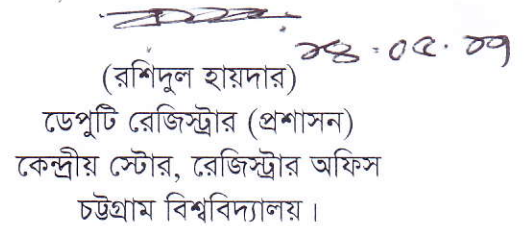 ২৪.০৫.০৭
(রশিদুল হায়দার)
ডেপুটি রেজিস্ট্রার (প্রশাসন)
কেন্দ্রীয় স্টোর, রেজিস্ট্রার অফিস
চট্টগ্রাম বিশ্ববিদ্যালয়।